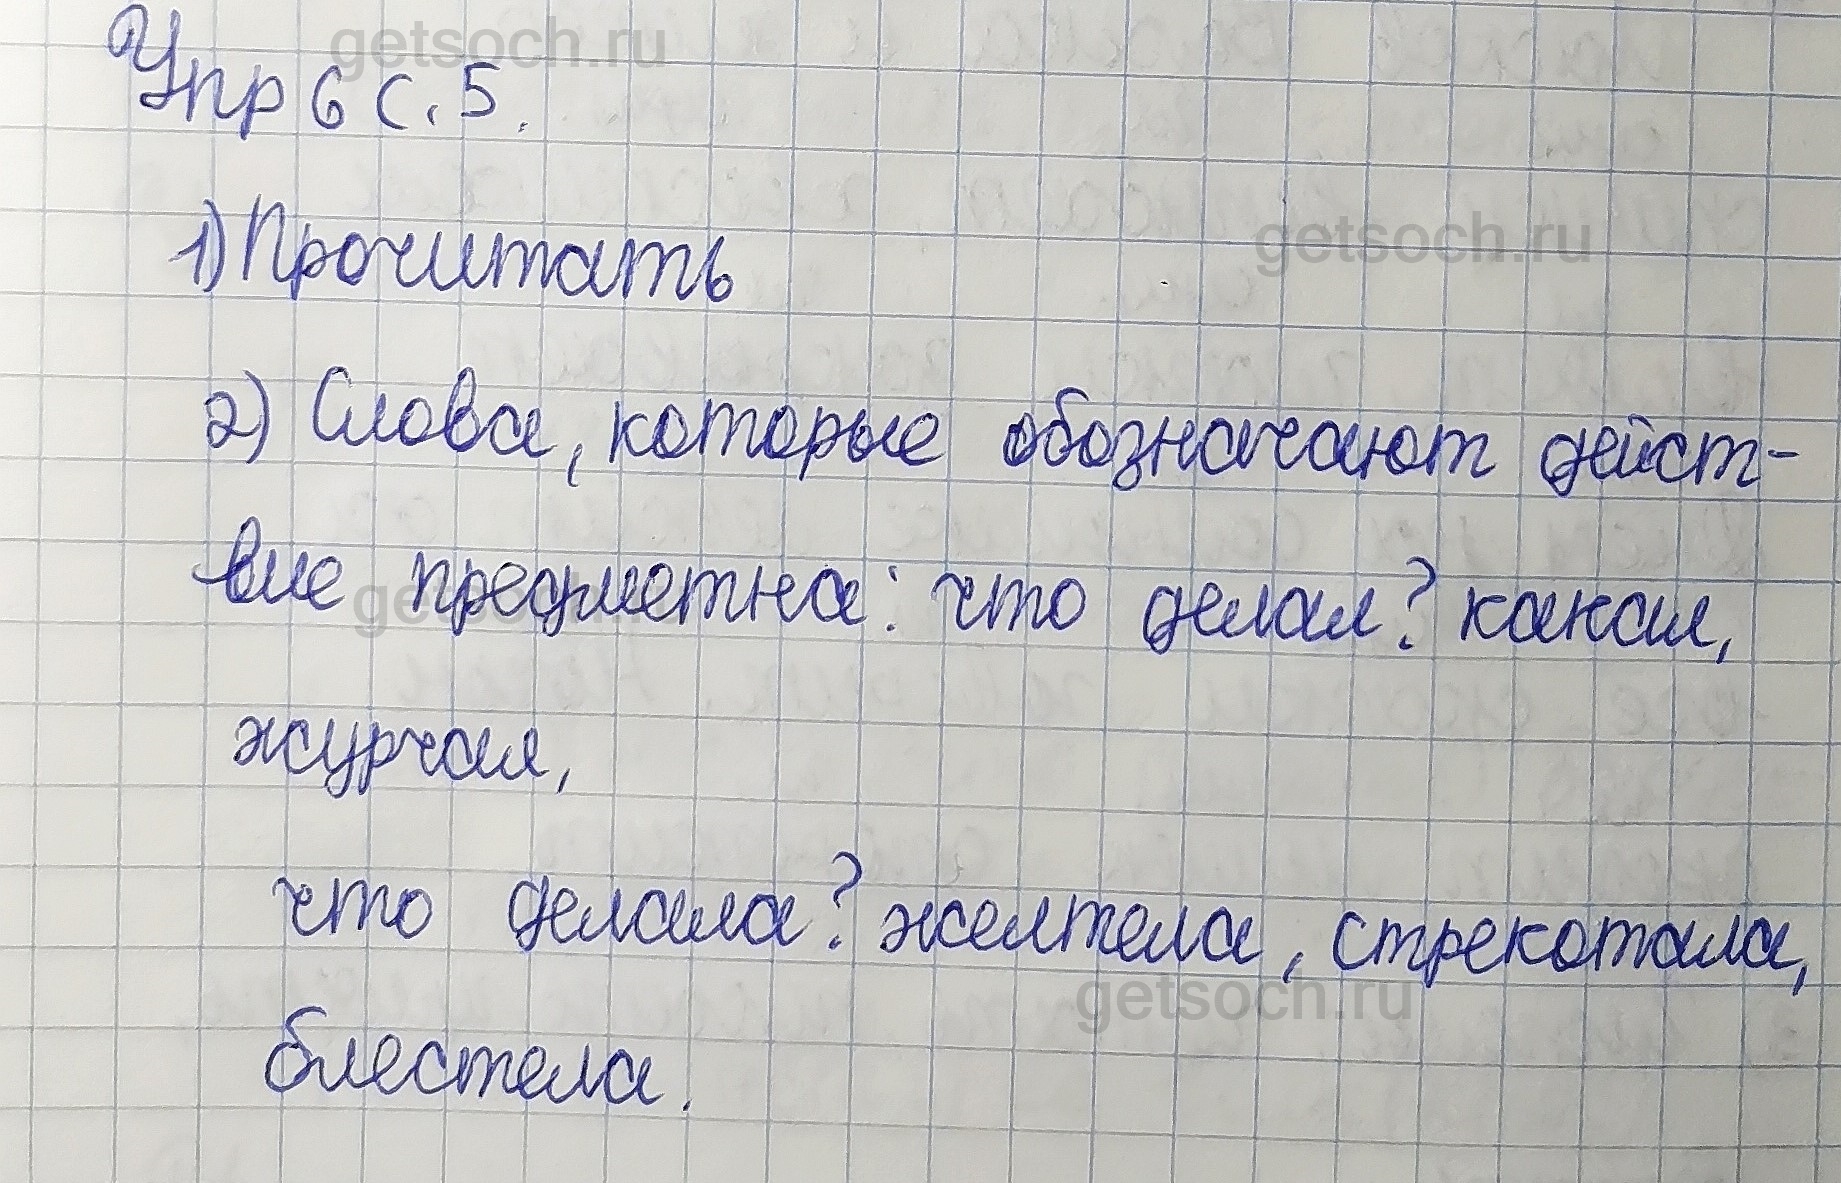 getsoch.ru
Упр 6 с. 5.
1) Прочитать
getsoch.ru
2) Слова, которые обозначают дейст-
вие предметна: что делал? какал,
getsoch.ru
журчал,
что делала? желтела, стрекотала,
getsoch.ru
блестела.